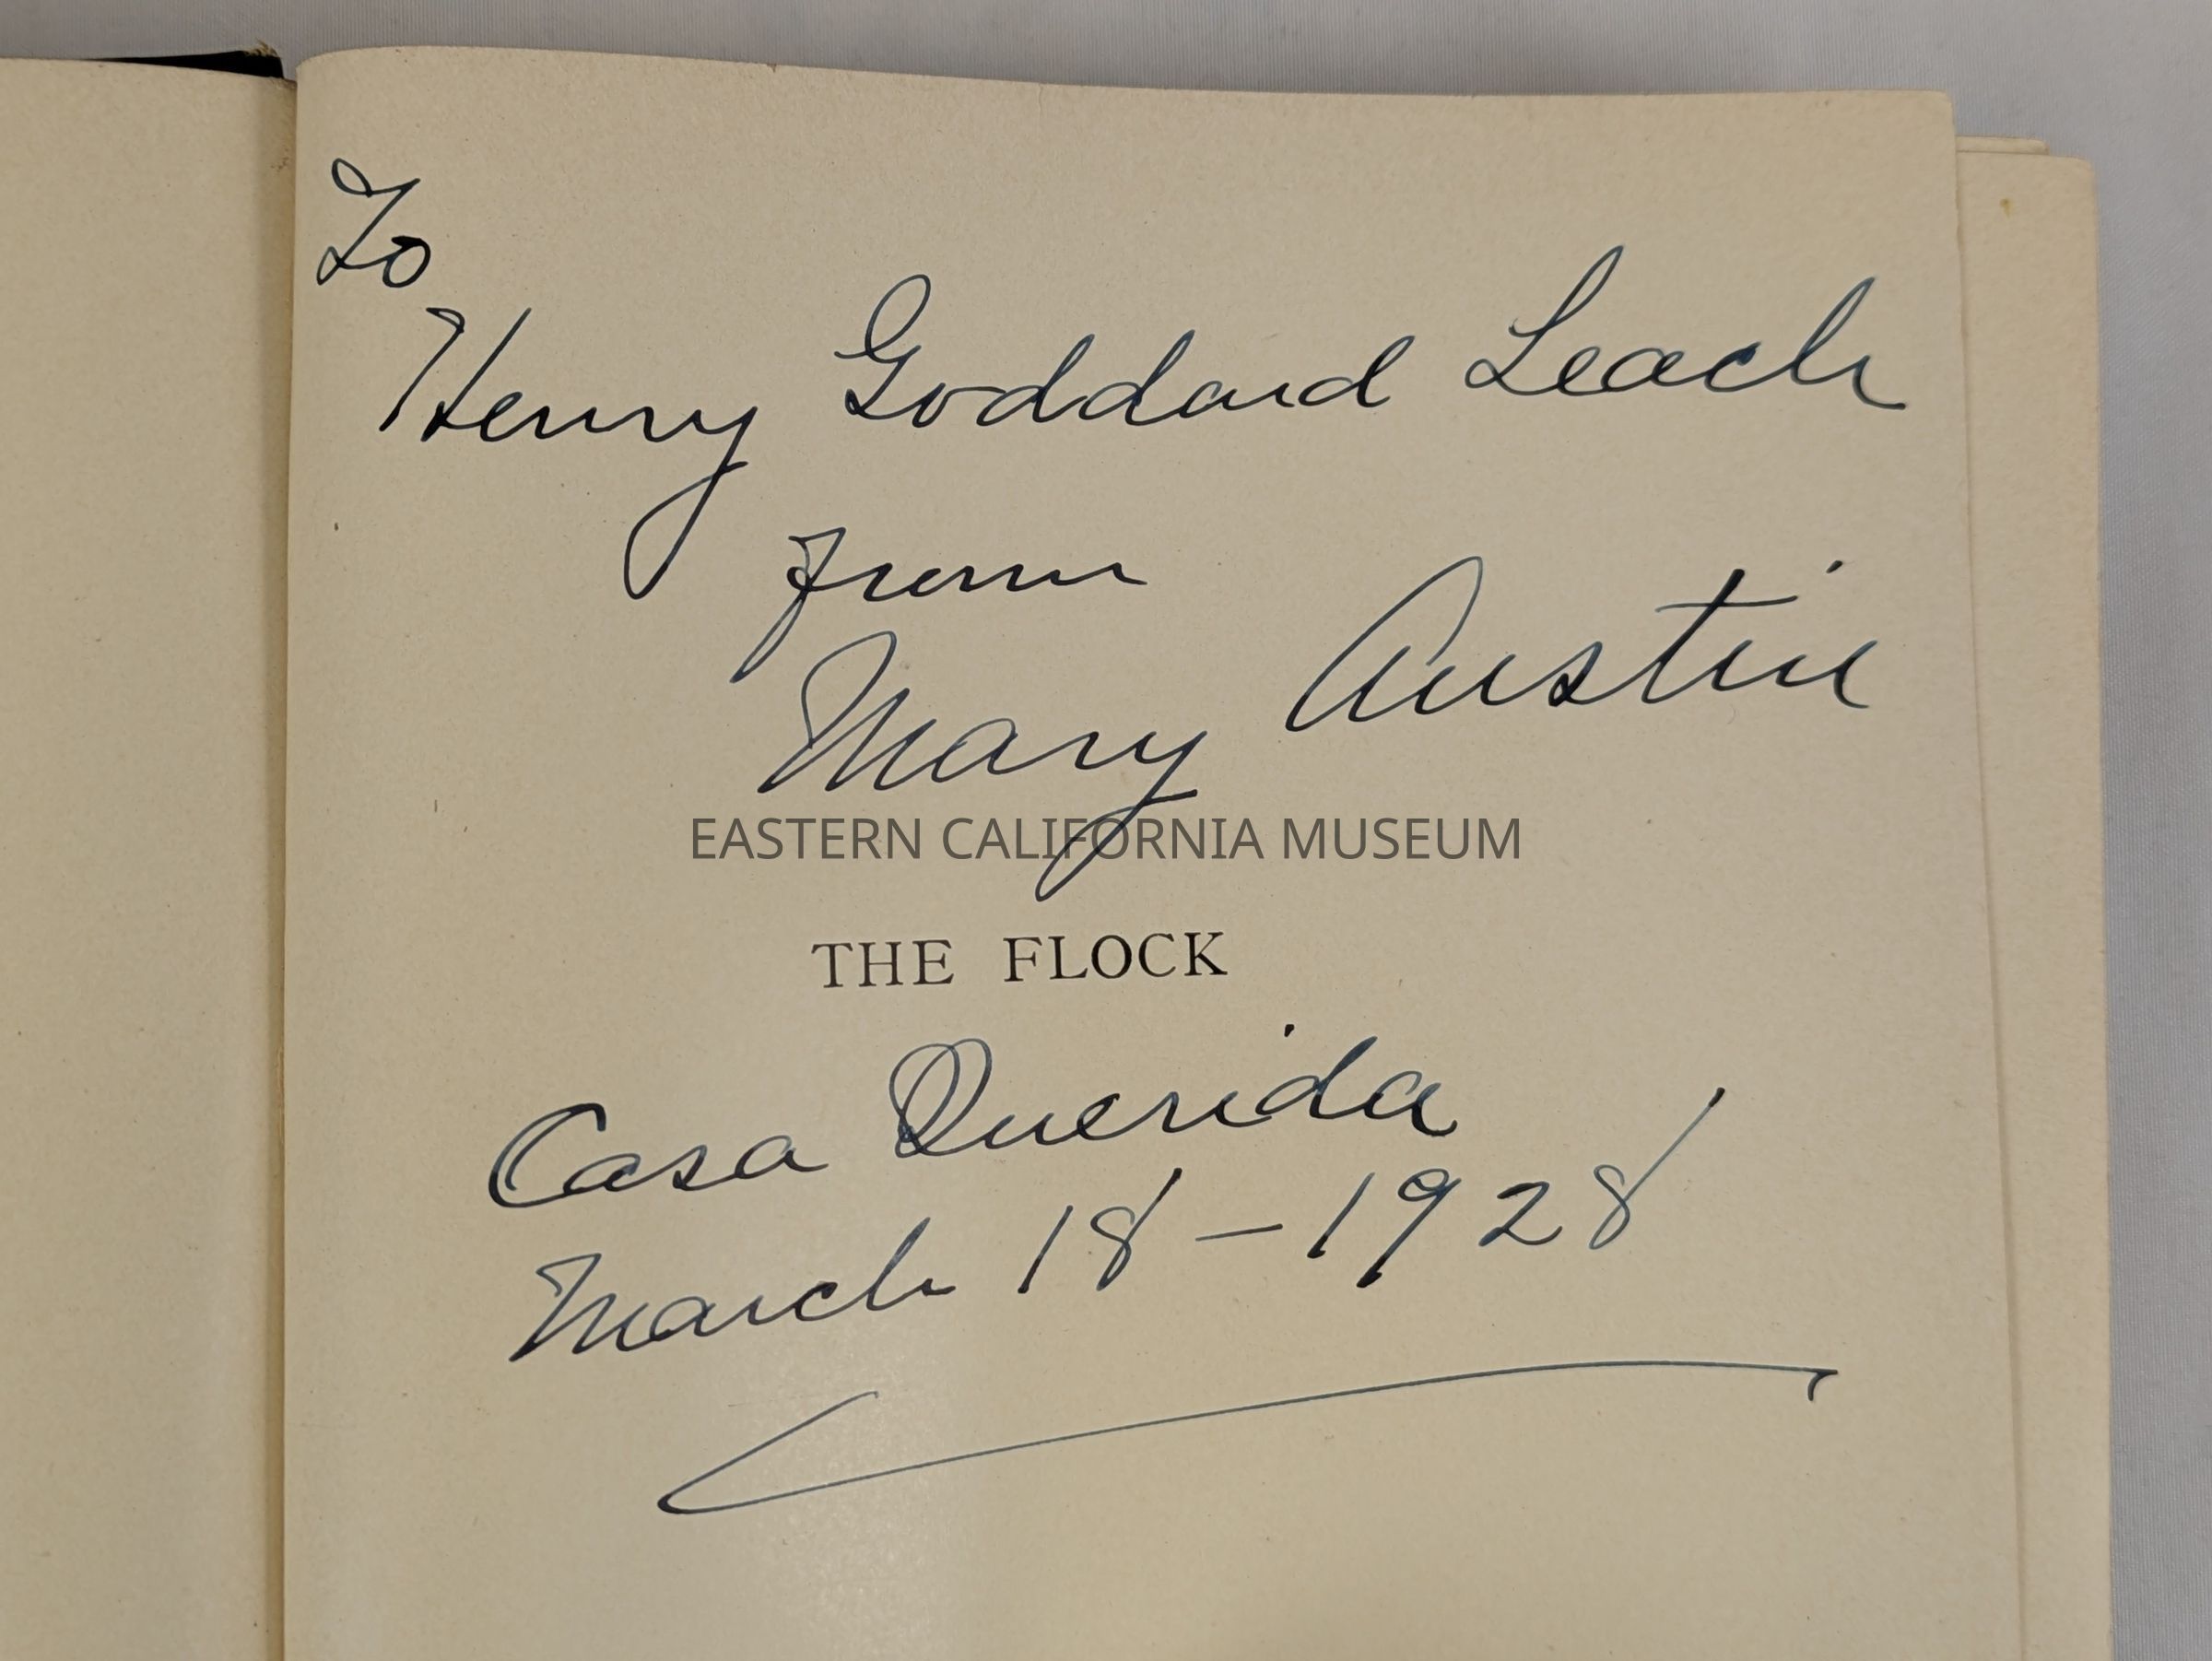 To
Henry Goddard Leach
from
Mary Austin
EASTERN CALIFORNIA MUSEUM
THE FLOCK
Casa Querida
March 18 – 1928